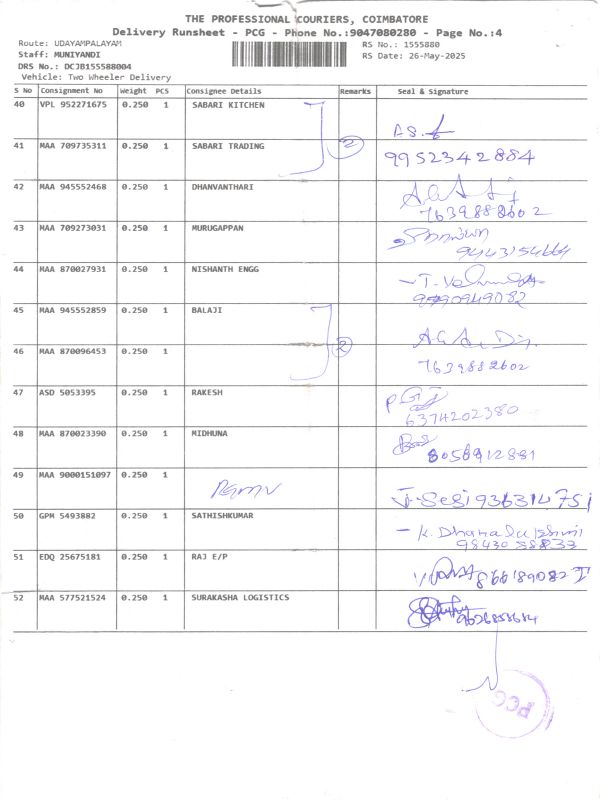 THE PROFESSIONAL COURIERS, COIMBATORE
Delivery Runsheet - PCG - Phone No.:9047080280 - Page No.:4
Route: UDAYAMPALAYAM
RS No.: 1555880
Staff: MUNIYANDI
RS Date: 26-May-2025
DRS No.: DCJB155588004
Vehicle: Two Wheeler Delivery
S No Consignment No Weight PCS Consignee Details Remarks Seal & Signature
40 VPL 952271675 0.250 1 SABARI KITCHEN
41 MAA 709735311 0.250 1 SABARI TRADING 2 9952342884
42 MAA 945552468 0.250 1 DHANVANTHARI
7639882602
43 MAA 709273031 0.250 1 MURUGAPPAN
9443154664
44 MAA 870027931 0.250 1 NISHANTH ENGG
45 MAA 945552859 0.250 1 BALAJI
46 MAA 870096453 0.250 1 2 7639882602
47 ASD 5053395 0.250 1 RAKESH
6374202380
48 MAA 870023390 0.250 1 MIDHUNA
8056912881
49 MAA 9000151097 0.250 1
50 GPM 5493882 0.250 1 SATHISHKUMAR
K. Dhanalakshmi
51 EDQ 25675181 0.250 1 RAJ E/P
52 MAA 577521524 0.250 1 SURAKASHA LOGISTICS
PCG